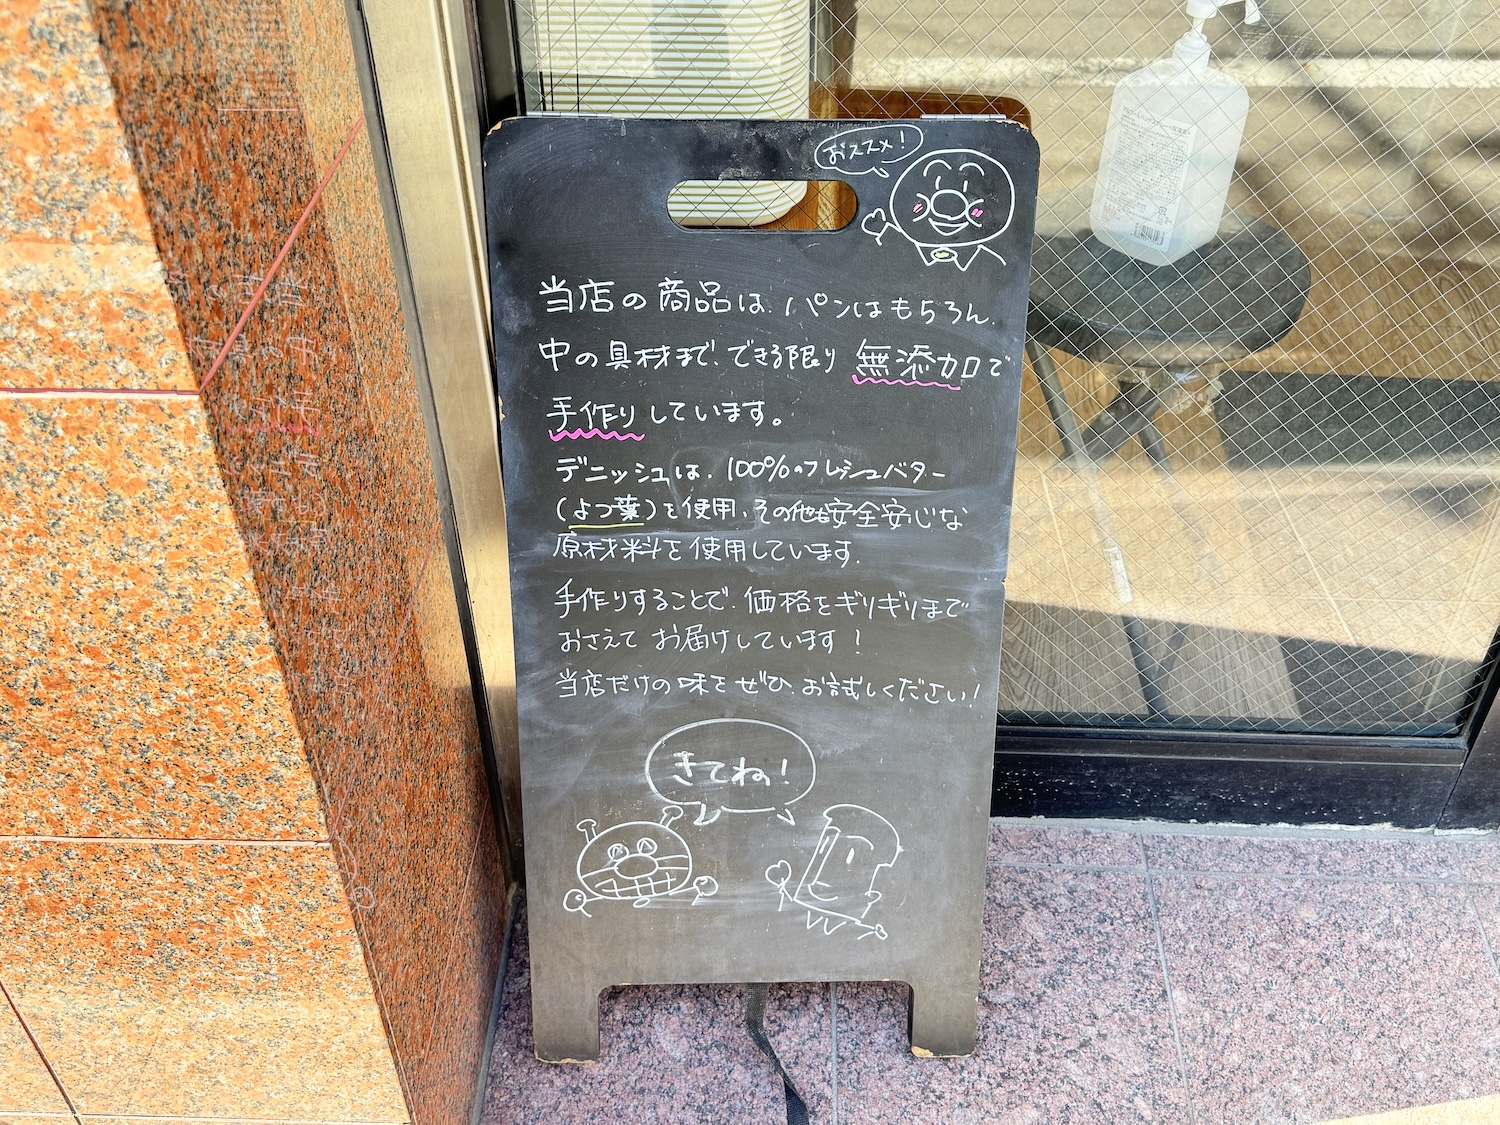 おススメ!
当店の商品は、パンはもちろん、
中の具材まで、できる限り 無添加で
手作りしています。
デニッシュは、100%のフレッシュバター
(よつ葉)を使用、その他も安全安心な
原材料を使用しています。
手作りすることで、価格をギリギリまで
おさえて お届けしています!
当店だけの味をぜひ、お試しください!
きてね!